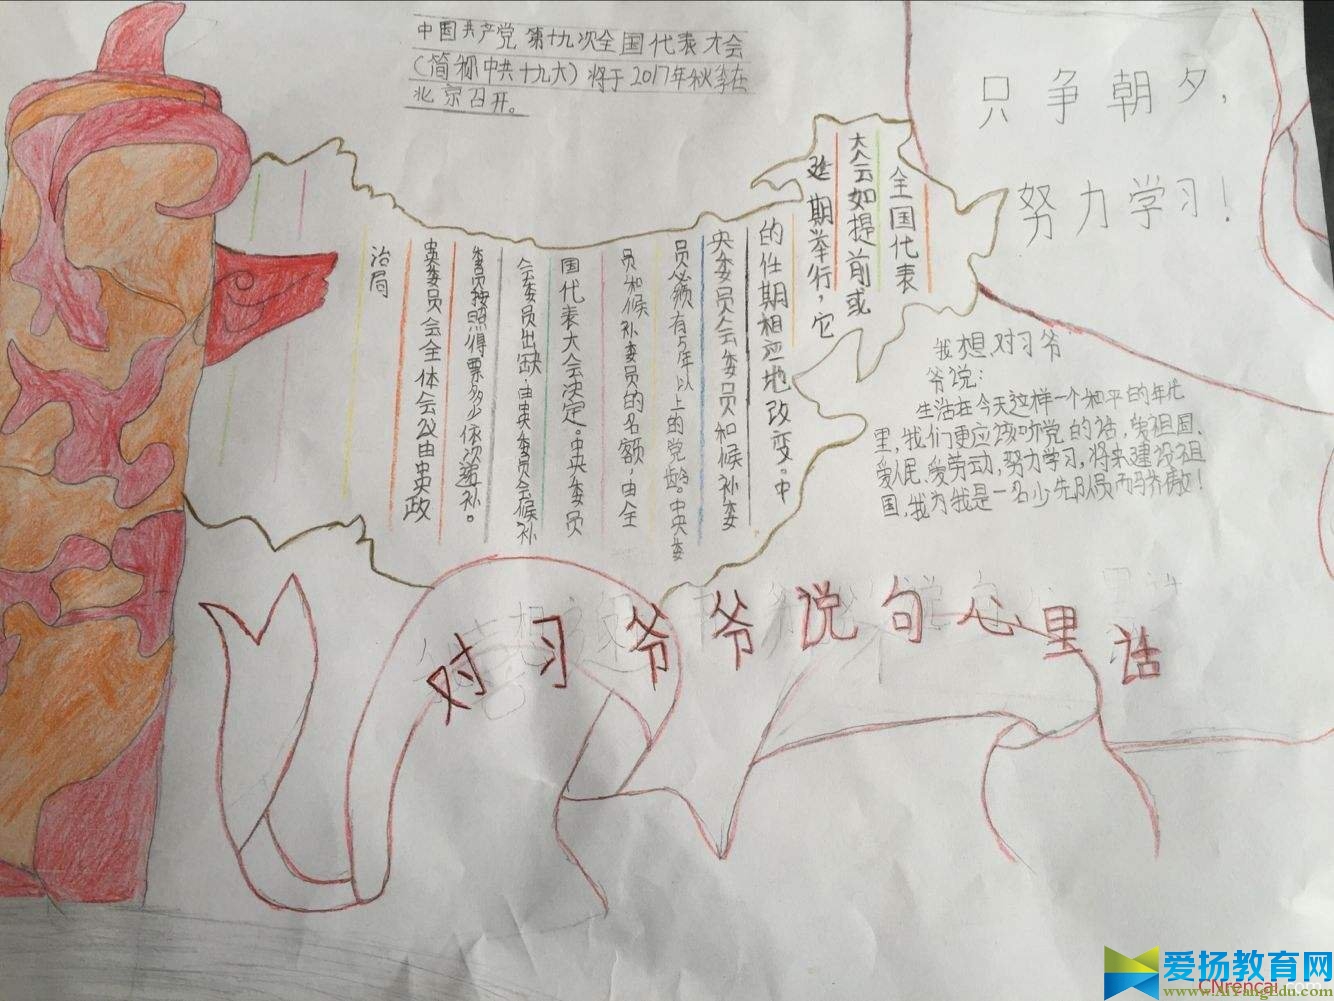 中国共产党第十九次全国代表大会
（简称中共十九大）将于2017年秋季在
北京召开。
只争朝夕，
努力学习！
全国代表
大会如提前或
延期举行，它
的任期相应地改变。中
央委员会委员和候补委
员必须有5年以上的党龄。中央委
员和候补委员的名额，由全
国代表大会决定。中央委员
会委员出缺，由中央委员会候补
委员按照得票多少依次递补。
中央委员会全体会议由中央政
治局
我想对习爷
爷说：
生活在今天这样一个和平的年代
里，我们更应该听党的话，爱祖国、
爱人民、爱劳动，努力学习，将来建设祖
国，我为我是一名少先队员而骄傲！
对习爷爷说句心里话
爱扬教育网
CNrencai.com
www.AiYangEdu.com